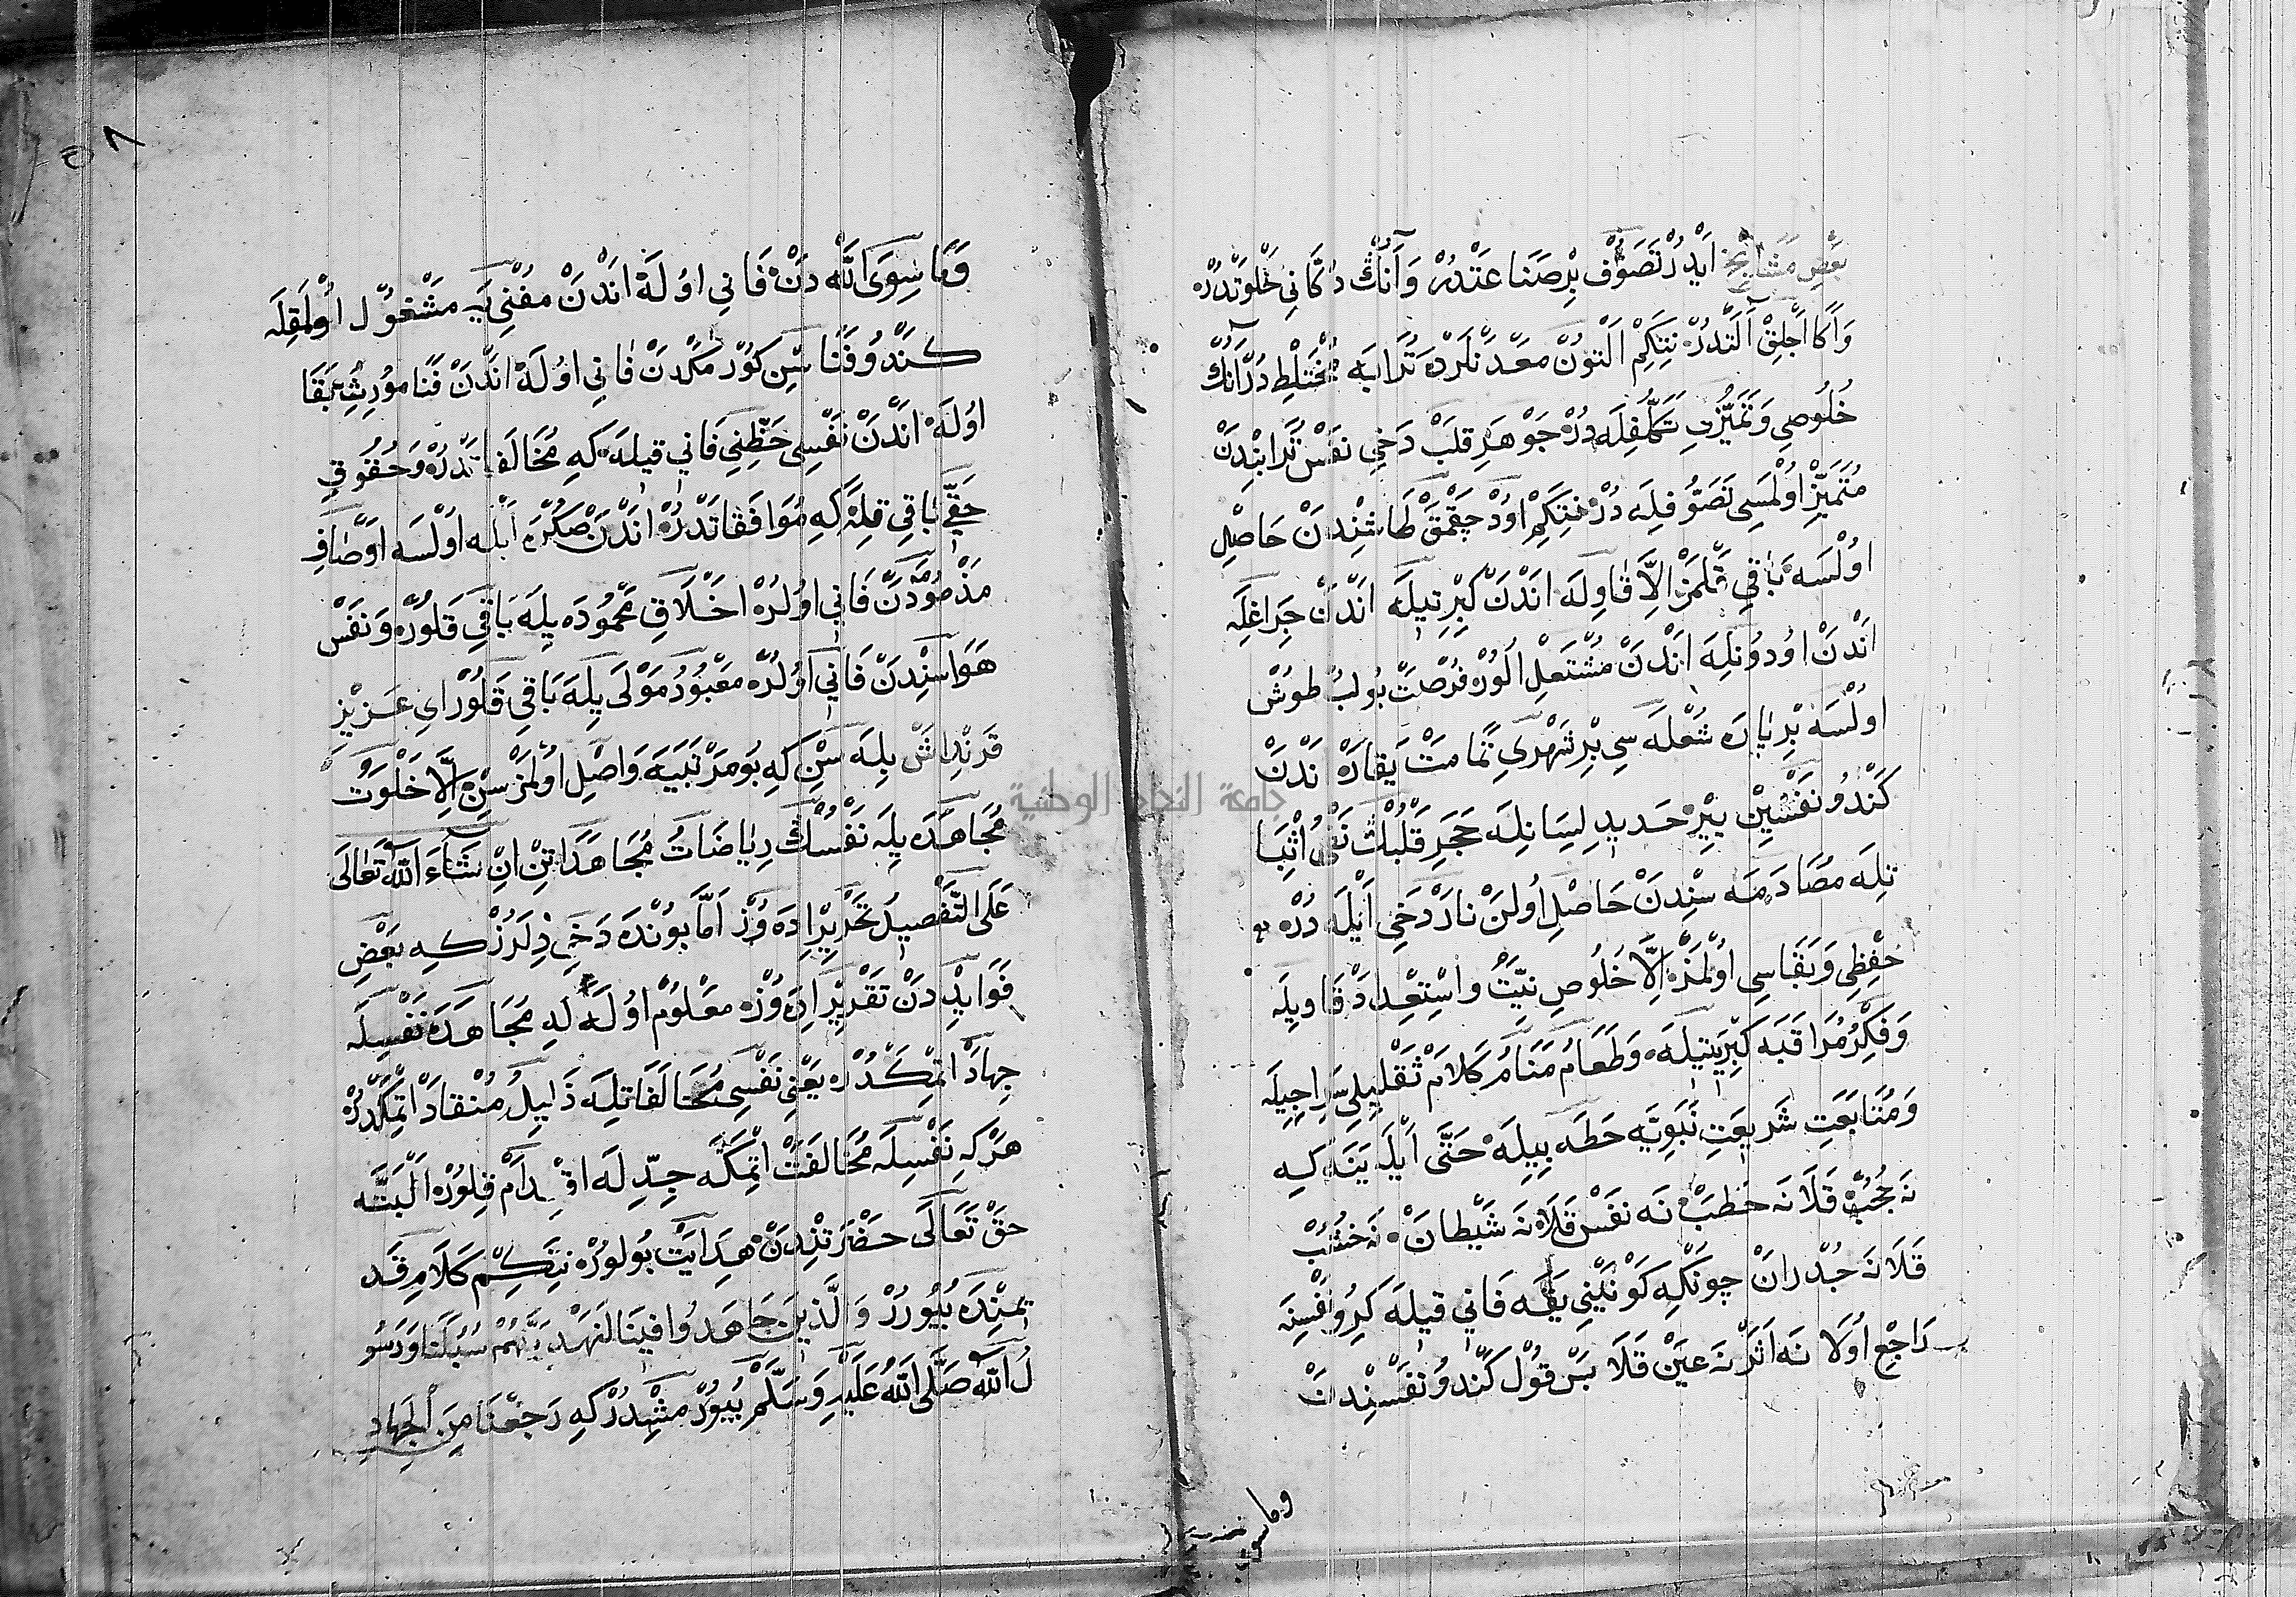 بَعْضِ مَشَايِخْ اَيْدُرْ تَصَوُّف بِرْ صَنَاعَتْدُرْ وَ اَنُڭْ دُكَّانِي خَلْوَتْدُرْ
وَ اَكَا اٰچْلِقْ اٰلَتْدُرْ نِتَكِمْ اَلْتُونْ مَعْدَنْلَرْدَه تُرَابَه مُخْتَلِطْ دُرْ اَنُڭْ
خُلُوصِي وَ تَمَيُّزِتِ تَكَلُّفِلَه دُرْ جَوْهَرِ قَلْبْ دَخِي نَفْسْ تُرَابِنْدَنْ
مُتَمَيِّزْ اُولْمَسِي تَصَوُّفِلَه دُرْ نِتَكِمْ اَوُدْ چَقْمَقْ طَاشِنْدَنْ حَاصِلْ
اوُلْسَه بَاقِي قَلْمَزْ اِلاَّ قَاوِلَه اَنْدَنْ كِبْرِتِيلَه اَنْدَنْ چَرَاغِلَه
اَنْدَنْ اوُدوُنِلَه اَنْدَنْ مُشْتَعِلْ اُلُورْ فُرْصَتْ بُولُبْ طُوشْ
اوُلْسَه بِرْ پَارَه شُعْلَه سِي بِرْ شَهْرِي تَمَامَتْ يَقَارْ اَنْدَنْ
كَنْدُو نَفْسِيْنْ بِيْرْ حَدِيدِ لِسَانِلَه حَجَرِ قَلْبُڭْ نَفْىُ اِثْبَا
تِلَه مُصَادَمَه سِنْدَنْ حَاصِلْ اُولَنْ نَارْ دَخِي اَيْلَه دُرْ
حِفْظِي وَ بَقَاسِي اُولْمَزْ اِلاَّ خُلُوصِ نِيَّتُ وَاسْتِعْدَادْ قَاوِيلَه
وَ فِكْرُ مُرَاقَبَه كِبْرِيتِيلَه وَ طَعَامُ مَنَامُ كَلَامْ تَقْلِيلِي سِرَاجِيلَه
وَ مُتَابَعَتِ شَرِيعَتِ نَبَوِيَّه حَطَه بِيلَه حَتَّى اَيْلَه يَنَه كِه
نَه حُجُبْ قَلَا نَه حَطَبْ نَه نَفْسْ قَلَا نَه شَيْطَانْ نَه خَشَبْ
قَلَا نَه جُدْرَانْ چُونْكِه كَوْنَيْنِي يَقَه فَانِي قِيلَه كِرُو نَفْسِنَه
رَاجِعْ اُولَا نَه اَثَرْ نَه عَيْنْ قَلَا بَسْ قُولْ كَنْدُو نَفْسِنْدَنْ
وما سوى
۵۸
وَمَا سِوَى اللّٰه دَنْ فَانِي اوُلَه اَنْدَنْ مُفْنِي يَه مَشْغُولْ اُولْمَقِلَه
كَنْدُو فَنَاسِّنِ كُورْمَكْدَنْ فَانِي اوُلَه اَنْدَنْ فَنَا مُورِثِ بَقَا
اوُلَه اَنْدَنْ نَفْسِي حَظِّنِي فَانِي قِيلَه كِه مُخَالَفَاتْدُرْ وَ حُقُوقِ
حَقِّي بَاقِي قِلَه كِه مُوَافَقَاتْدُرْ اَنْدَنْ صُكْرَه اَيْلَه اُولْسَه اَوْصَافِ
مَذْمُومَدَنْ فَانِي اوُلُرْ اَخْلَاقِ مَحْمُودَه يِلَه بَاقِي قَلُورْ وَ نَفْسْ
هَوَاسِنْدَنْ فَانِي اوُلُرْ مَعْبُودُ مَوْلَى يِلَه بَاقِي قَلُورْ اَيِ عَزِيزْ
قَرِنْدَاشْ بِلَه سِنْ كِه بُو مَرْتَبَيَه وَاصِلْ اوُلْمَزْ سِنْ اِلَّا خَلْوَتُ
مُجَاهَدَه يِلَه نَفْسُڭْ رِيَاضَاتُ مُجَاهَدَاتِنْ اِنْ شَاءَ اللّٰه تَعَالَى
عَلَى التَّفْصِيلْ تَحْرِيرْ اِدَه وُزْ اَمَّا بُونْدَه دَخِي دِلَرُزْ كِه بَعْضِ
فَوَايِدْدَنْ تَقْرِيرْ اِدَه وُزْ مَعْلُومْ اوُلَه كِه مُجَاهَدَه نَفْسِلَه
جِهَادْ اتْمَكْدُرْ يَعْنِي نَفْسِي مُخَالَفَاتِلَه ذَلِيلُ مُنْقَادْ اتْمَكْدُرْ
هَرْ كِه نَفْسِلَه مُخَالَفَتْ اتْمَكَه جِدِّ لَه اقْدَامْ قِلُورْ اَلْبَتَّه
حَقْ تَعَالَى حَضْرَتْنِدَنْ هِدَايَتْ بُولُورْ نِتَكِمْ كَلَامِ قَد
يمِنْدَه بُيُورُرْ وَالَّذِينَ جَاهَدُوا فِينَا لَنَهْدِيَنَّهُمْ سُبُلَنَا وَرَسُو
لُ اللّٰه صَلَّى اللّٰهُ عَلَيْهِ وَسَلَّمْ بُيُورْمِشْدُرْ كِه رَجَعْنَا مِنَ الْجِهَادِ
جامعة النجاح الوطنية